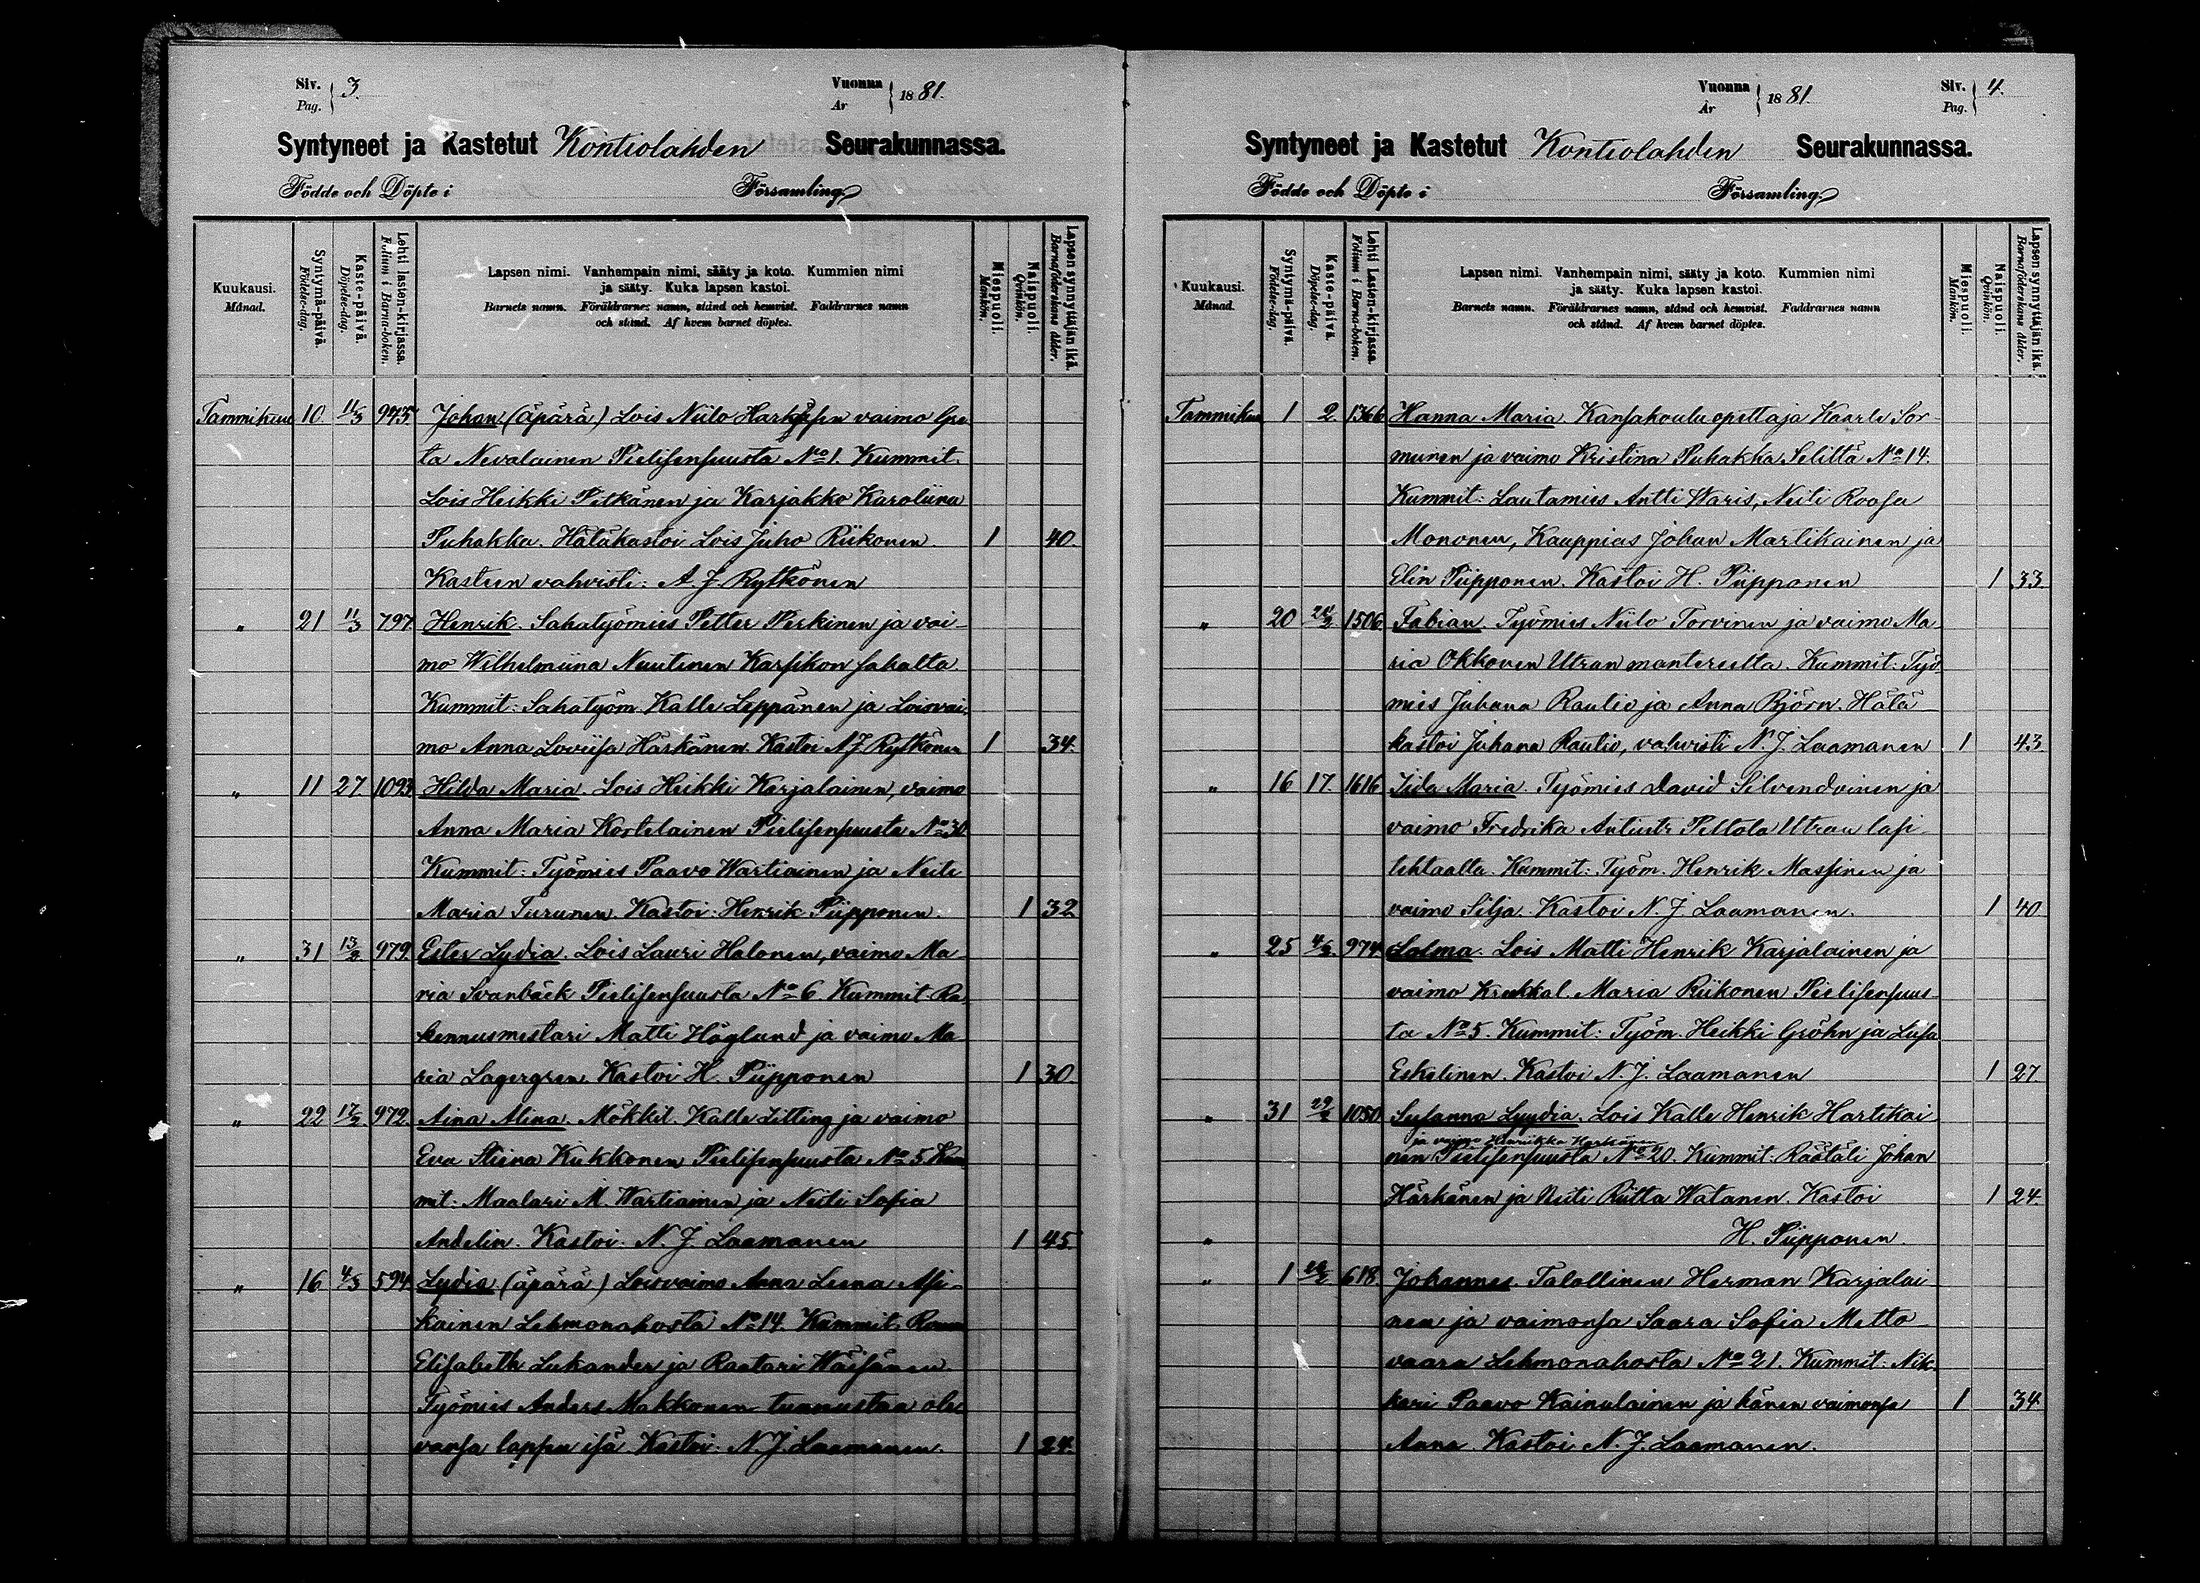 Siv. Pag. 3. Vuonna År 1881.
Syntyneet ja Kastetut Kontiolahden Seurakunnassa.
Födde och Döpte i Församling
Kuukausi. Månad.
Syntymä-päivä. Födelse-dag.
Kaste-päivä. Döpelse-dag.
Lehti lasten-kirjassa. Folium i Barna-boken.
Lapsen nimi. Vanhempain nimi, sääty ja koto. Kummien nimi
ja sääty. Kuka lapsen kastoi.
Barnets namn. Föräldrarnes namn, stånd och hemvist. Faddrarnes namn
och stånd. Af hvem barnet döptes.
Miespuoli. Mankön.
Naispuoli. Qvinkön.
Lapsen synnyttäjän ikä. Barnaföderskans ålder.
Tammikuu 10. 11/3 973. Johan (äpärä) Lois Niilo vaimo Gre
ta Nevalainen Pielisensuusta No 1. Kummit.
Lois Heikki Pitkänen ja Karjakko Karoliina
Puhakka. Hätäkastoi Lois Juho Riikonen. 1 40.
Kasteen vahvisti: A. J. Rytkönen
" 21 11/3 797. Henrik. Sahatyömies Petter Perkinen ja vai-
mo Wilhelmiina Nuutinen Karsikon sahalta
Kummit: Sahatyöm. Kalle Leppänen ja Loisvai-
mo Anna Loviisa Härkänen. Kastoi A J. Rytkönen 1 34.
" 11 27 1093. Hilda Maria. Lois Heikki Karjalainen, vaimo
Anna Maria Kostelainen Pielisensuusta No 30
Kummit: Työmies Paavo Wartiainen ja Neiti
Maria Turunen. Kastoi: Henrik Piipponen. 1 32
" 31 13/2 979. Ester Lydia. Lois Lauri Halonen, vaimo Ma
ria Svanbäck Pielisensuusta No 6. Kummit. Ra
kennusmestari Matti Höglund ja vaimo Ma
ria Lagergren. Kastoi H. Piipponen 1 30.
" 22 17/2 972. Aina Alina. Mökkil. Kalle Litting ja vaimo
Eva Stiina Kukkonen Pielisensuusta No 5 Kum
mit: Maalari M. Wartiainen ja Neiti Sofia
Andelin. Kastoi: N. J. Laamanen 1 45.
" 16 4/3 594. Lydia (äpärä) Loisvaimo Anna Leena Asi-
kainen Lehmonahosta No 14. Kummit:
Elisabeth Lukander ja Raatari Wäisänen.
Työmies Anders Makkonen tunnustaa ole
vansa lapsen isä Kastoi: N. J. Laamanen. 1 24.
Vuonna År 1881. Siv. Pag. 4.
Syntyneet ja Kastetut Kontiolahden Seurakunnassa.
Födde och Döpte i Församling
Kuukausi. Månad.
Syntymä-päivä. Födelse-dag.
Kaste-päivä. Döpelse-dag.
Lehti Lasten-kirjassa. Folium i Barna-boken.
Lapsen nimi. Vanhempain nimi, sääty ja koto. Kummien nimi
ja sääty. Kuka lapsen kastoi.
Barnets namn. Föräldrarnes namn, stånd och hemvist. Faddrarnes namn
och stånd. Af hvem barnet döptes.
Miespuoli. Mankön.
Naispuoli. Qvinkön.
Lapsen synnyttäjän ikä. Barnaföderskans ålder.
Tammikuu 1 2. 1366 Hanna Maria. Kansakoulu opettaja Kaarle Sor-
munen ja vaimo Kristina Puhakka Seliltä No 14.
Kummit: Lautamies Antti Waris, Neiti Roosa
Mononen, Kauppias Johan Martikainen ja
Elin Piipponen. Kastoi H. Piipponen 1 33.
" 20 1506 Fabian. Työmies Niilo Torvinen ja vaimo Ma-
ria Okkonen Utran mantereelta. Kummit: Työ-
mies Juhana Rautio ja Anna Björn. Hätä
kastoi Juhana Rautio, vahvisti N. J. Laamanen 1 43.
" 16 17. 1616 Iida Maria. Työmies David Silvendoinen ja
vaimo Fredrika Antintr Peltola Utran lasi
tehtaalta. Kummit: Työm. Henrik Massinen ja
vaimo Silja. Kastoi N. J Laamanen. 1 40
" 25 4/3. 974. Salma. Lois Matti Henrik Karjalainen ja
vaimo Maria Riikonen Pielisensuus-
ta No 5. Kummit: Työm. Heikki Gröhn ja Liisa
Eskelinen. Kastoi N. J. Laamanen 1 27.
" 31 1050. Susanna Lyydia. Lois Kalle Henrik Hartikai
ja vaimo Henriikka Karhunen
nen Pielisensuusta No 20. Kummit: Räätäli Johan
Härkänen ja Neiti Riitta Watanen. Kastoi 1 24.
" H. Piipponen.
" 1 618. Johannes. Talollinen Herman Karjalai
nen ja vaimonsa Saara Sofia Metto
vaara Lehmonahosta No 21. Kummit: Nik-
kari Paavo Kainulainen ja hänen vaimonsa 1 34
Anna. Kastoi N. J. Laamanen.